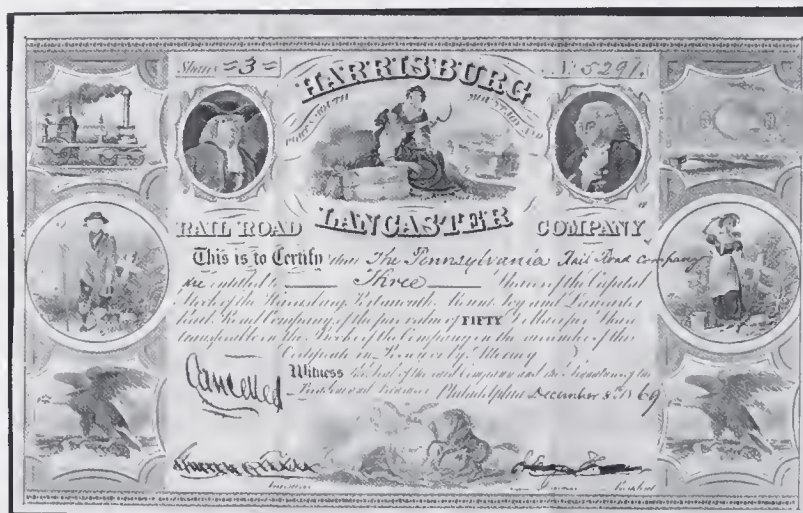 Shares =3=
No 5291.
HARRISBURG
PORTSMOUTH MOUNT JOY AND
RAIL ROAD LANCASTER COMPANY
This is to Certify that The Pennsylvania Rail Road Company
are entitled to Three Shares of the Capital
Stock of the Harrisburg, Portsmouth, Mount Joy and Lancaster
Rail Road Company of the par value of FIFTY Dollars per Share
transferable on the Books of the Company on the surrender of this
Certificate in Person or by Attorney
Cancelled
Witness the Seal of the said Company and the Signatures of the
President and Treasurer Philadelphia December 8th 1869
Treasurer
President